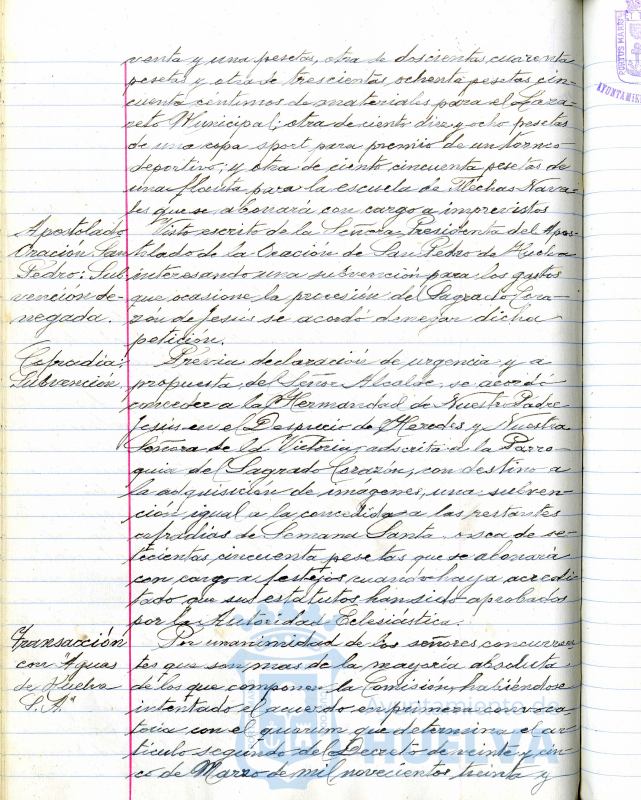 venta y una pesetas, otra de doscientas cuarenta
pesetas y otra de trescientas ochenta pesetas cin-
cuenta céntimos de materiales para el Laza-
reto Municipal; otra de ciento diez y ocho pesetas
de una copa sport para premio de un torneo
deportivo; y otra de ciento cincuenta pesetas de
una flauta para la escuela de Flechas Nava-
les que se abonará con cargo a imprevistos.
Apostolado
Oración San
Pedro: Sub-
vención de-
negada.
Visto escrito de la Señora Presidenta del Apos-
tolado de la Oración de San Pedro de Huelva
interesando una subvención para los gastos
que ocasione la procesión del Sagrado Cora-
zón de Jesús se acordó denegar dicha
petición.
Cofradia:
Subvención.
Prévia declaración de urgencia y a
propuesta del Señor Alcalde, se acordó
conceder a la Hermandad de Nuestro Padre
Jesús en el Desprecio de Herodes y Nuestra
Señora de la Victoria, adscrita a la Parro-
quia del Sagrado Corazón, con destino a
la adquisición de imágenes, una subven-
ción igual a la concedida a las restantes
cofradias de Semana Santa, o sea de se-
tecientas cincuenta pesetas que se abonará
con cargo a festejos cuando haya acredi-
tado que sus estatutos han sido aprobados
por la Autoridad Eclesiástica.
Transacción
con "Aguas
de Huelva
S.A."
Por unanimidad de los señores concurren-
tes que son mas de la mayoria absoluta
de los que componen la Comisión, habiéndose
intentado el acuerdo en primera convoca-
toria con el quorum que determina el ar-
tículo segundo del Decreto de veinte y cin-
co de Marzo de mil novecientos treinta y
Ayuntamiento de
HUELVA
PORTUS MARIS
AYUNTAMIE